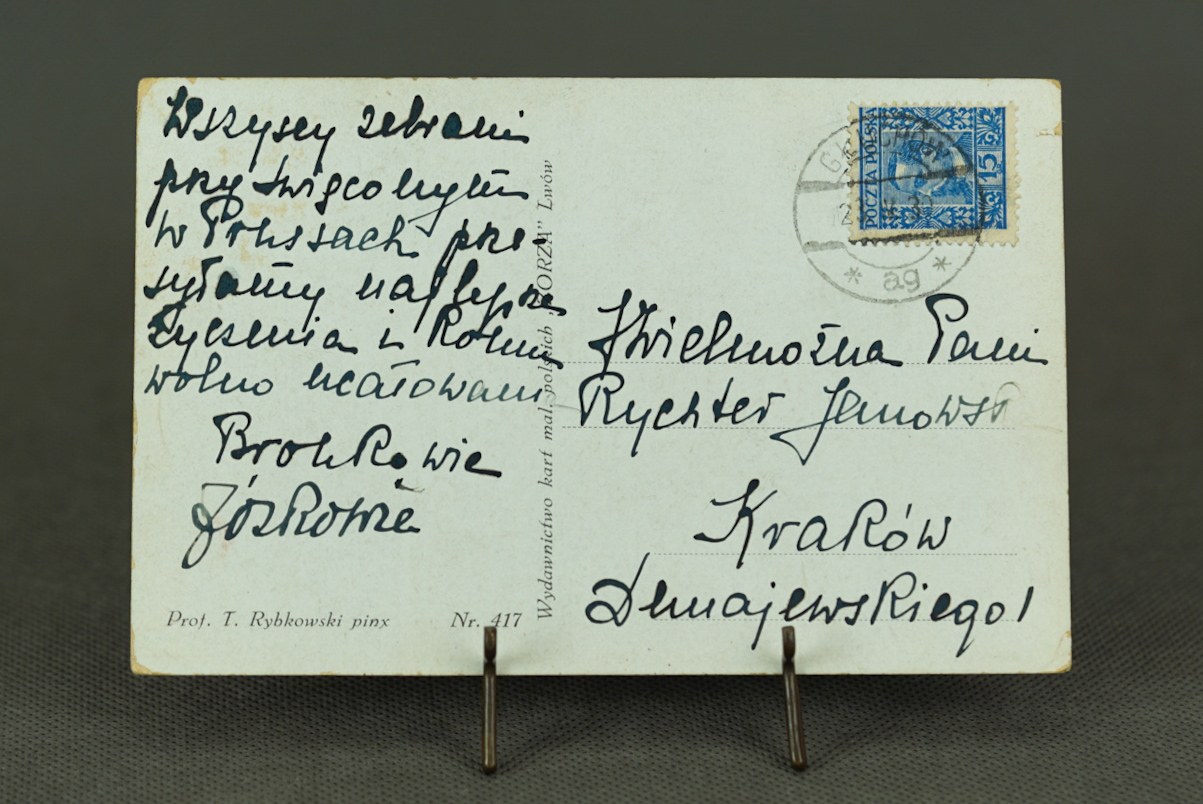 Wszyscy zebrani
przy święconym
w Prusach prze-
syłamy najlepsze
życzenia i
wolno ucałowani
Józkowie
Prof. T. Rybkowski pinx
Nr. 417
Wydawnictwo kart mal. polskich „ZORZA” Lwów
POCZTA POLSKA
15
* ag *
JWielmożna Pani
Rychter Janowsk
Kraków
Dunajewskiego 1